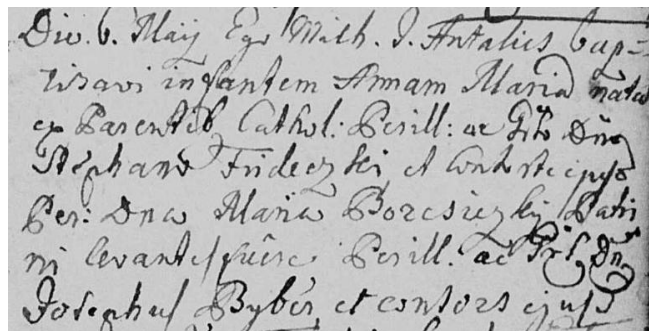 Die. 6. Maij Ego Math. J. Antalius bap=
tisavi infantem Annam Maria nata
ex Parentib Cathol: Perill: ac Gñso Dño
Stephano Frideczki et Consorte ejus
Per: Dna Maria Borcsiczky Patri
ni levantes fuere Perill. ac Gñs Dñs
Josephus Byber et consors ejusd